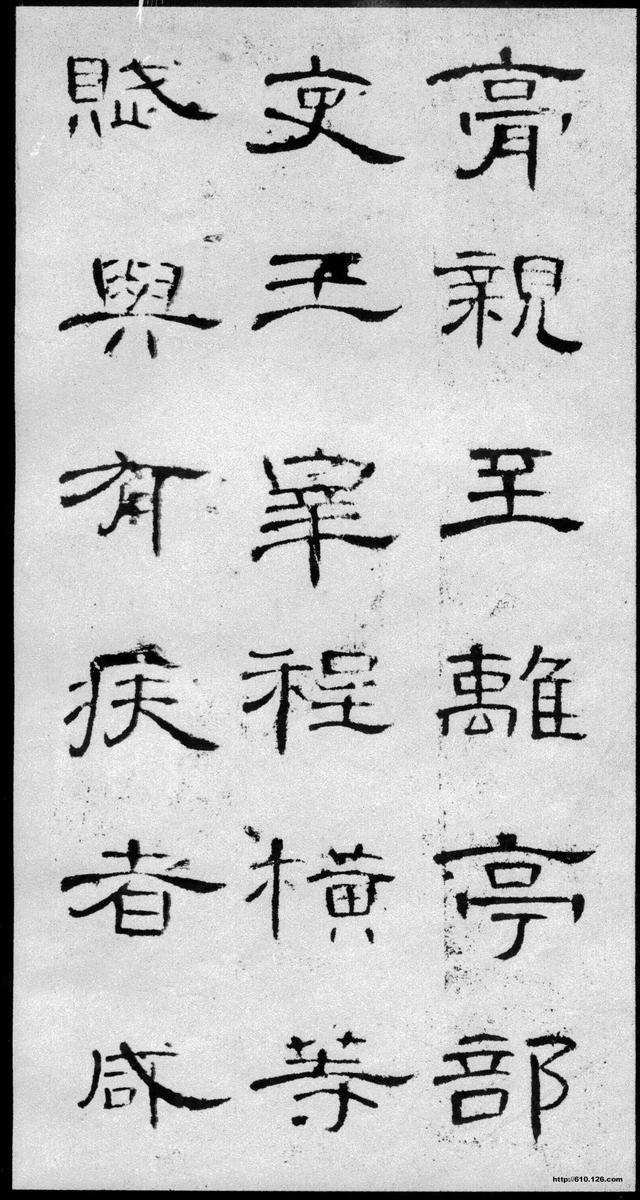 膏親至離亭部
吏王宰程橫等
賦與有疾者咸
http://610.126.com